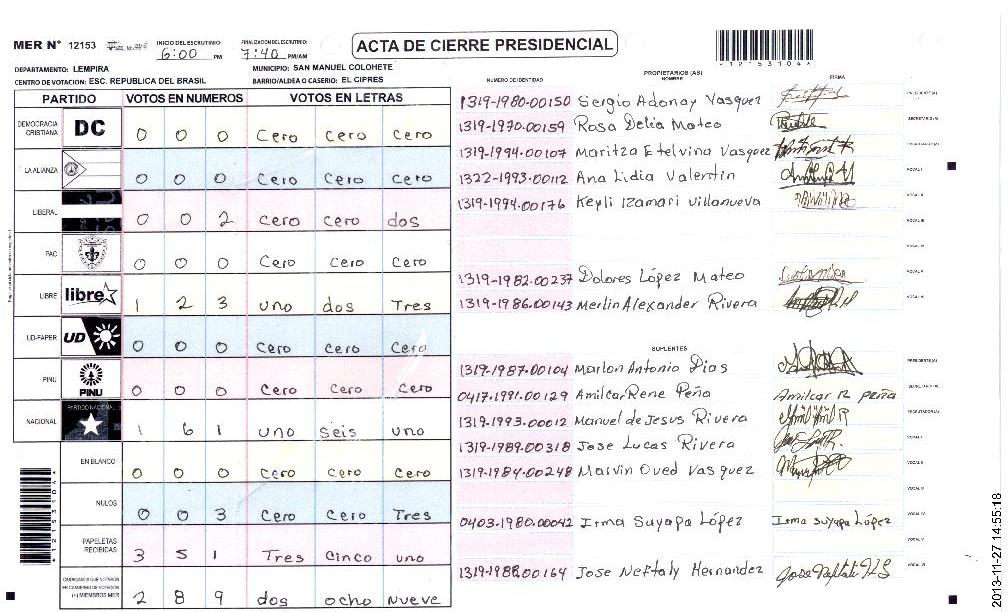 MER N° 12153
INICIO DEL ESCRUTINIO:
6:00 PM
FINALIZACION DEL ESCRUTINIO:
7:40 PM/AM
ACTA DE CIERRE PRESIDENCIAL
*12153104*
DEPARTAMENTO: LEMPIRA
MUNICIPIO: SAN MANUEL COLOHETE
CENTRO DE VOTACION: ESC. REPUBLICA DEL BRASIL
BARRIO/ALDEA O CASERIO: EL CIPRES
PARTIDO VOTOS EN NUMEROS VOTOS EN LETRAS
DEMOCRACIA CRISTIANA DC 0 0 0 Cero Cero Cero
LA ALIANZA 0 0 0 Cero Cero Cero
LIBERAL 0 0 2 Cero Cero dos
PAC 0 0 0 Cero Cero Cero
LIBRE libre 1 2 3 uno dos Tres
UD-FAPER UD 0 0 0 Cero Cero Cero
PINU PINU 0 0 0 Cero Cero Cero
NACIONAL PARTIDO NACIONAL 1 6 1 uno seis uno
EN BLANCO 0 0 0 Cero Cero Cero
NULOS 0 0 3 Cero Cero Tres
PAPELETAS RECIBIDAS 3 5 1 Tres Cinco uno
CIUDADANOS QUE VOTARON EN CUADERNO DE VOTACION (+) MIEMBROS MER 2 8 9 dos ocho Nueve
*12153104*
NUMERO DE IDENTIDAD
PROPIETARIOS (AS)
NOMBRE
FIRMA
1319-1980-00150 Sergio Adonay Vasquez PRESIDENTE(A)
1319-1970-00159 Rosa Delia Mateo SECRETARIO(A)
1319-1994-00107 Maritza Etelvina Vasquez ESCRUTADOR(A)
1322-1993-00112 Ana Lidia Valentin VOCAL I
1319-1994-00176 Keyli Izamari Villanueva VOCAL II
VOCAL III
VOCAL IV
1319-1982-00237 Dolores López Mateo VOCAL V
1319-1986-00143 Merlin Alexander Rivera VOCAL VI
SUPLENTES
1319-1987-00104 Marlon Antonio Dias PRESIDENTE(A)
0417-1991-00129 Amilcar Rene Peña Amilcar R peña SECRETARIO(A)
1319-1993-00012 Manuel de Jesus Rivera ESCRUTADOR(A)
1319-1989-00318 Jose Lucas Rivera VOCAL I
1319-1984-00248 Marvin Oved Vasquez VOCAL II
VOCAL III
0403-1980-00042 Irma Suyapa López Irma suyapa López VOCAL IV
VOCAL V
1319-1988-00164 Jose Neftaly Hernandez VOCAL VI
2013-11-27 14:55:18